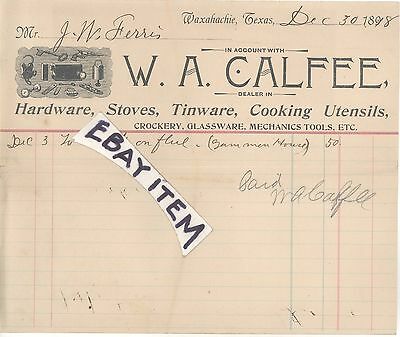 Waxahachie, Texas, Dec 30 1898
Mr. J. W. Ferris
IN ACCOUNT WITH
W. A. CALFEE,
DEALER IN
Hardware, Stoves, Tinware, Cooking Utensils,
CROCKERY, GLASSWARE, MECHANICS TOOLS, ETC.
Dec 3 To on flue - House) 50
EBAY ITEM
Paid
W A Calfee